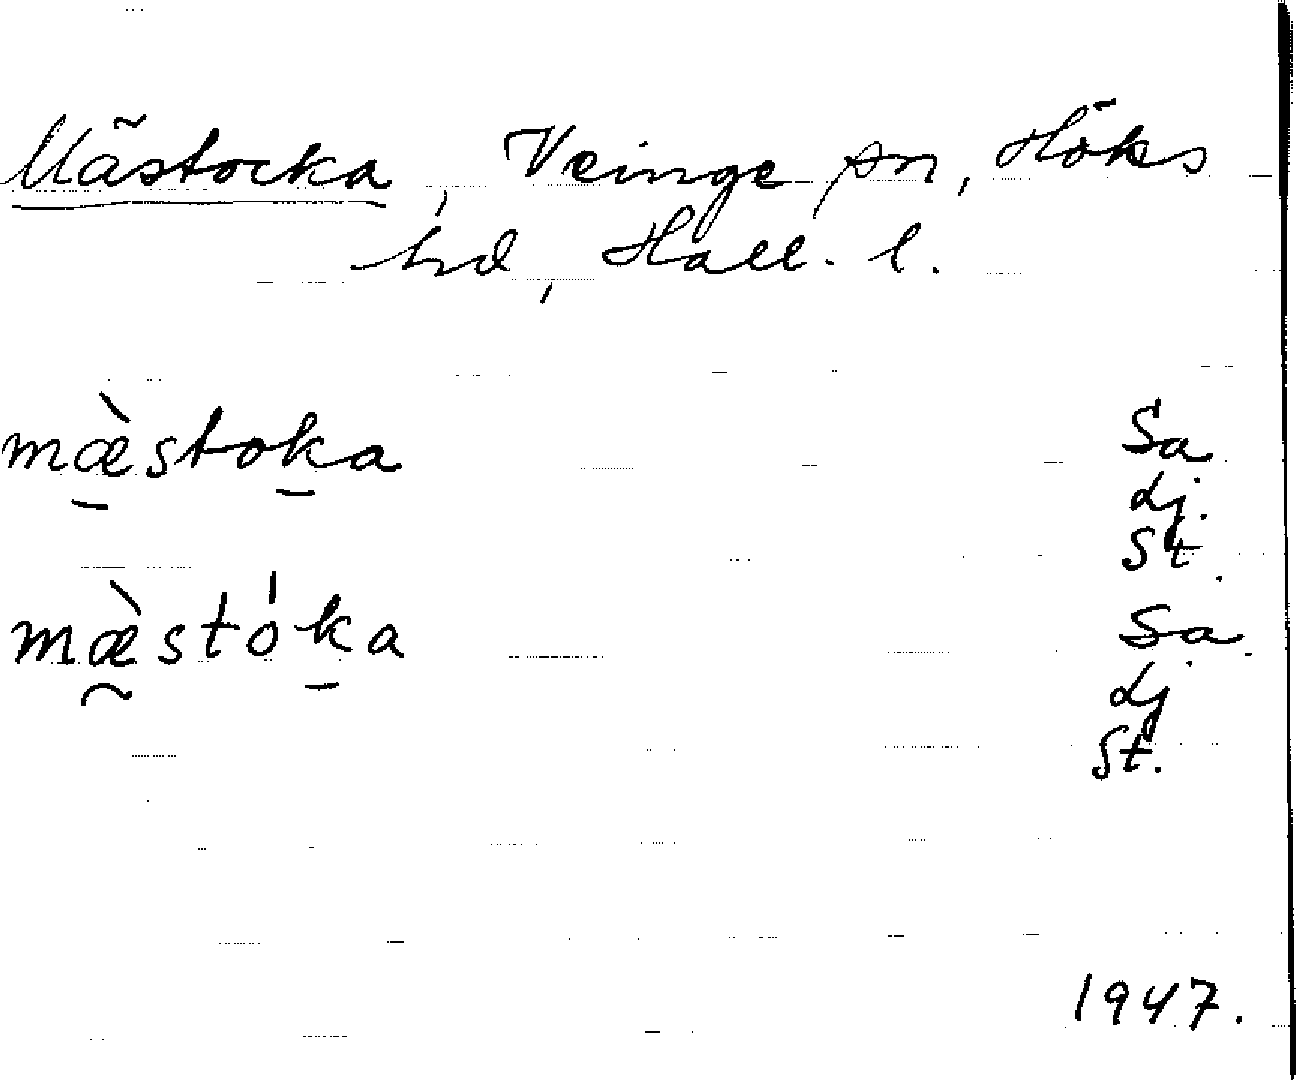 Mästocka, Veinge sn, Höks
hd, Hall. l.
mæ̠̀stok̠a Sa
dj.
St.
mæ̰̀stók̠a Sa
dj
St.
1947.